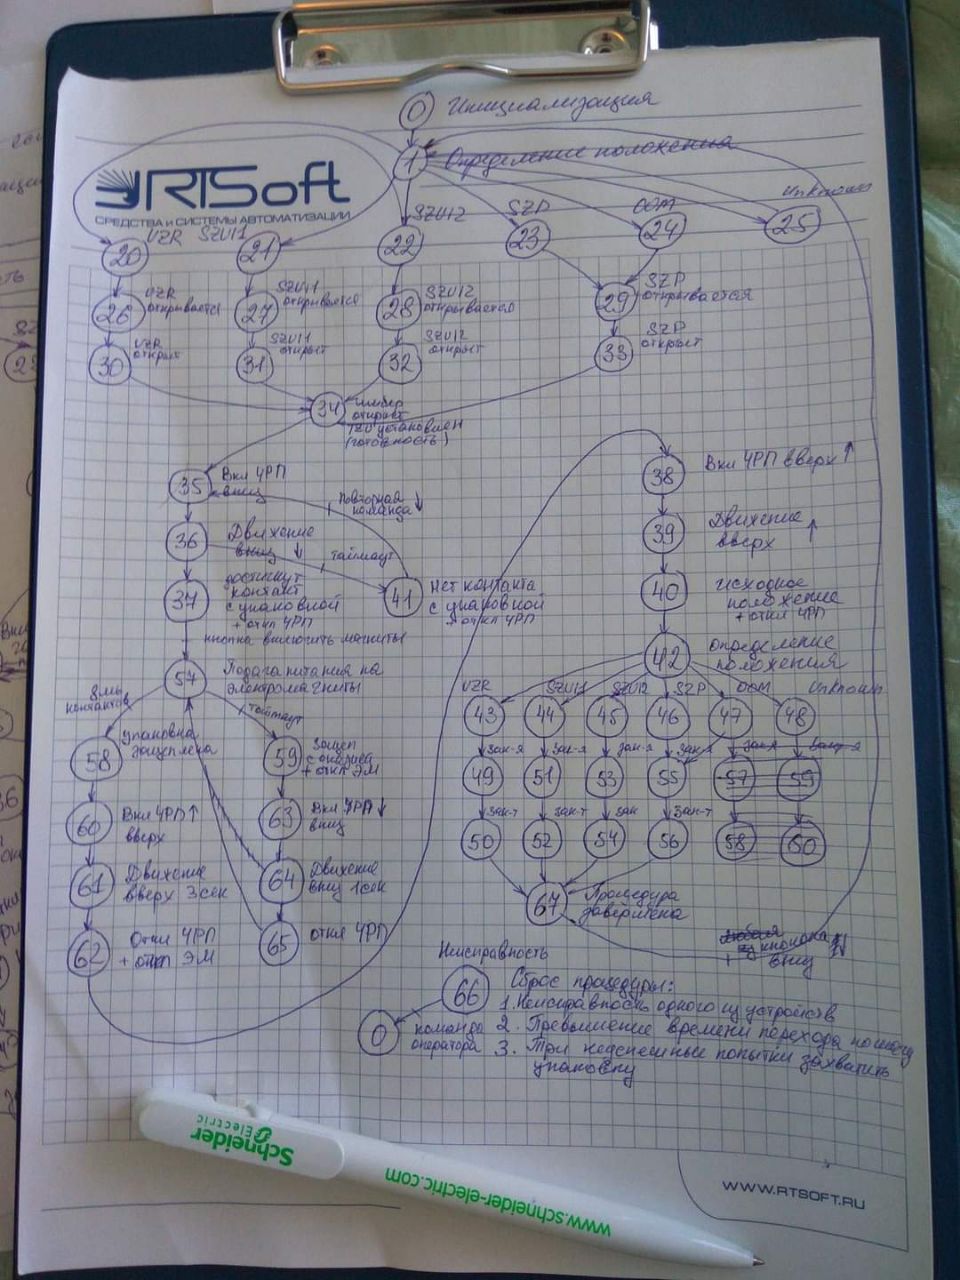 0 Инициализация
1 Определение положения
RTSoft
СРЕДСТВА И СИСТЕМЫ АВТОМАТИЗАЦИИ
VZR SZU1 SZU12 SZP OOM Unknown
20 21 22 23 24 25
26 VZR открывается
27 SZU11 открывается
28 SZU12 открывается
29 SZP открывается
30 VZR открыт
31 SZU11 открыт
32 SZU12 открыт
33 SZP открыт
34 шибер
открыт
установлен
(готовность)
35 Вкл ЧРП
вниз
повторная
команда
36 Движение
вниз
таймаут
37 достигнут
контакт
с упаковкой
+ откл ЧРП
кнопка включить магниты
41 Нет контакта
с упаковкой
+ откл ЧРП
38 Вкл ЧРП вверх
39 Движение
вверх
40 исходное
положение
+ откл ЧРП
42 определение
положения
57 Подача питания на
электромагниты
контактов
таймаут
58 упаковка
зацеплена
59 Зацеп
+ откл ЭМ
60 Вкл ЧРП
вверх
63 Вкл ЧРП
вниз
61 Движение
вверх 3сек
64 Движение
вниз 1сек
62 Откл ЧРП
+ откл ЭМ
65 откл ЧРП
VZR SZU11 SZU12 SZP OOM Unknown
43 44 45 46 47 48
зак-я зак-я зак-я зак-я зак-я зак-я
49 51 53 55 57 59
зак-т зак-т зак зак-т
50 52 54 56 58 60
67 Процедура
завершена
кнопка
+ вниз
Неисправность
66
0 команда
оператора
Сброс процедуры:
1. Неисправность одного из устройств
2. Превышение времени перехода по
3. Три неуспешные попытки захватить
упаковку
Schneider
Electric
www.schneider-electric.com
WWW.RTSOFT.RU